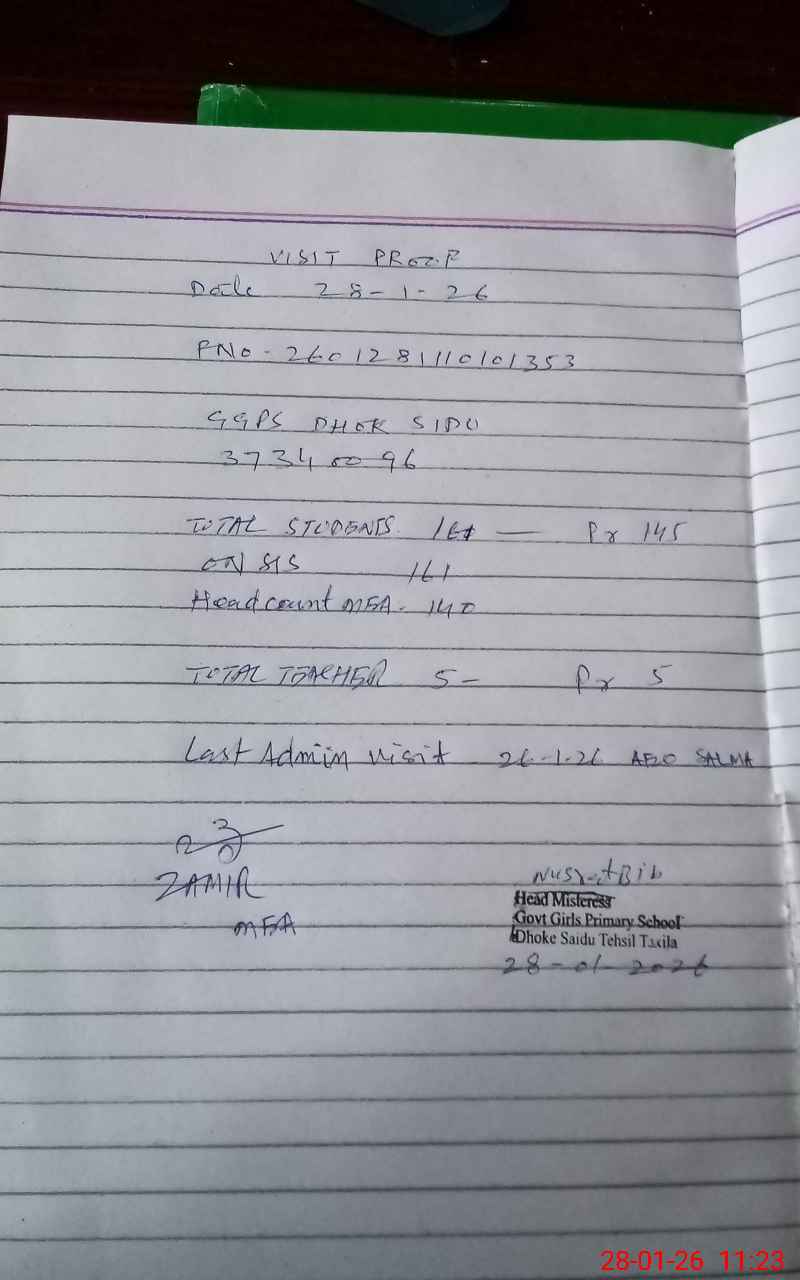 VISIT PROOF
Date 28-1-26
PNo - 260128111010 1353
GGPS DHOK SIDU
37340096
TOTAL STUDENTS. 161 — Pr 145
ON SIS 161
Head count MEA. 140
TOTAL TEACHER 5 - Pr 5
Last Admin visit 26-1-26 AEO SALMA
ZAMIR
MEA
Nusrat Bibi
Head Mistress
Govt Girls Primary School
Dhoke Saidu Tehsil Taxila
28-01-2026
28-01-26 11:23